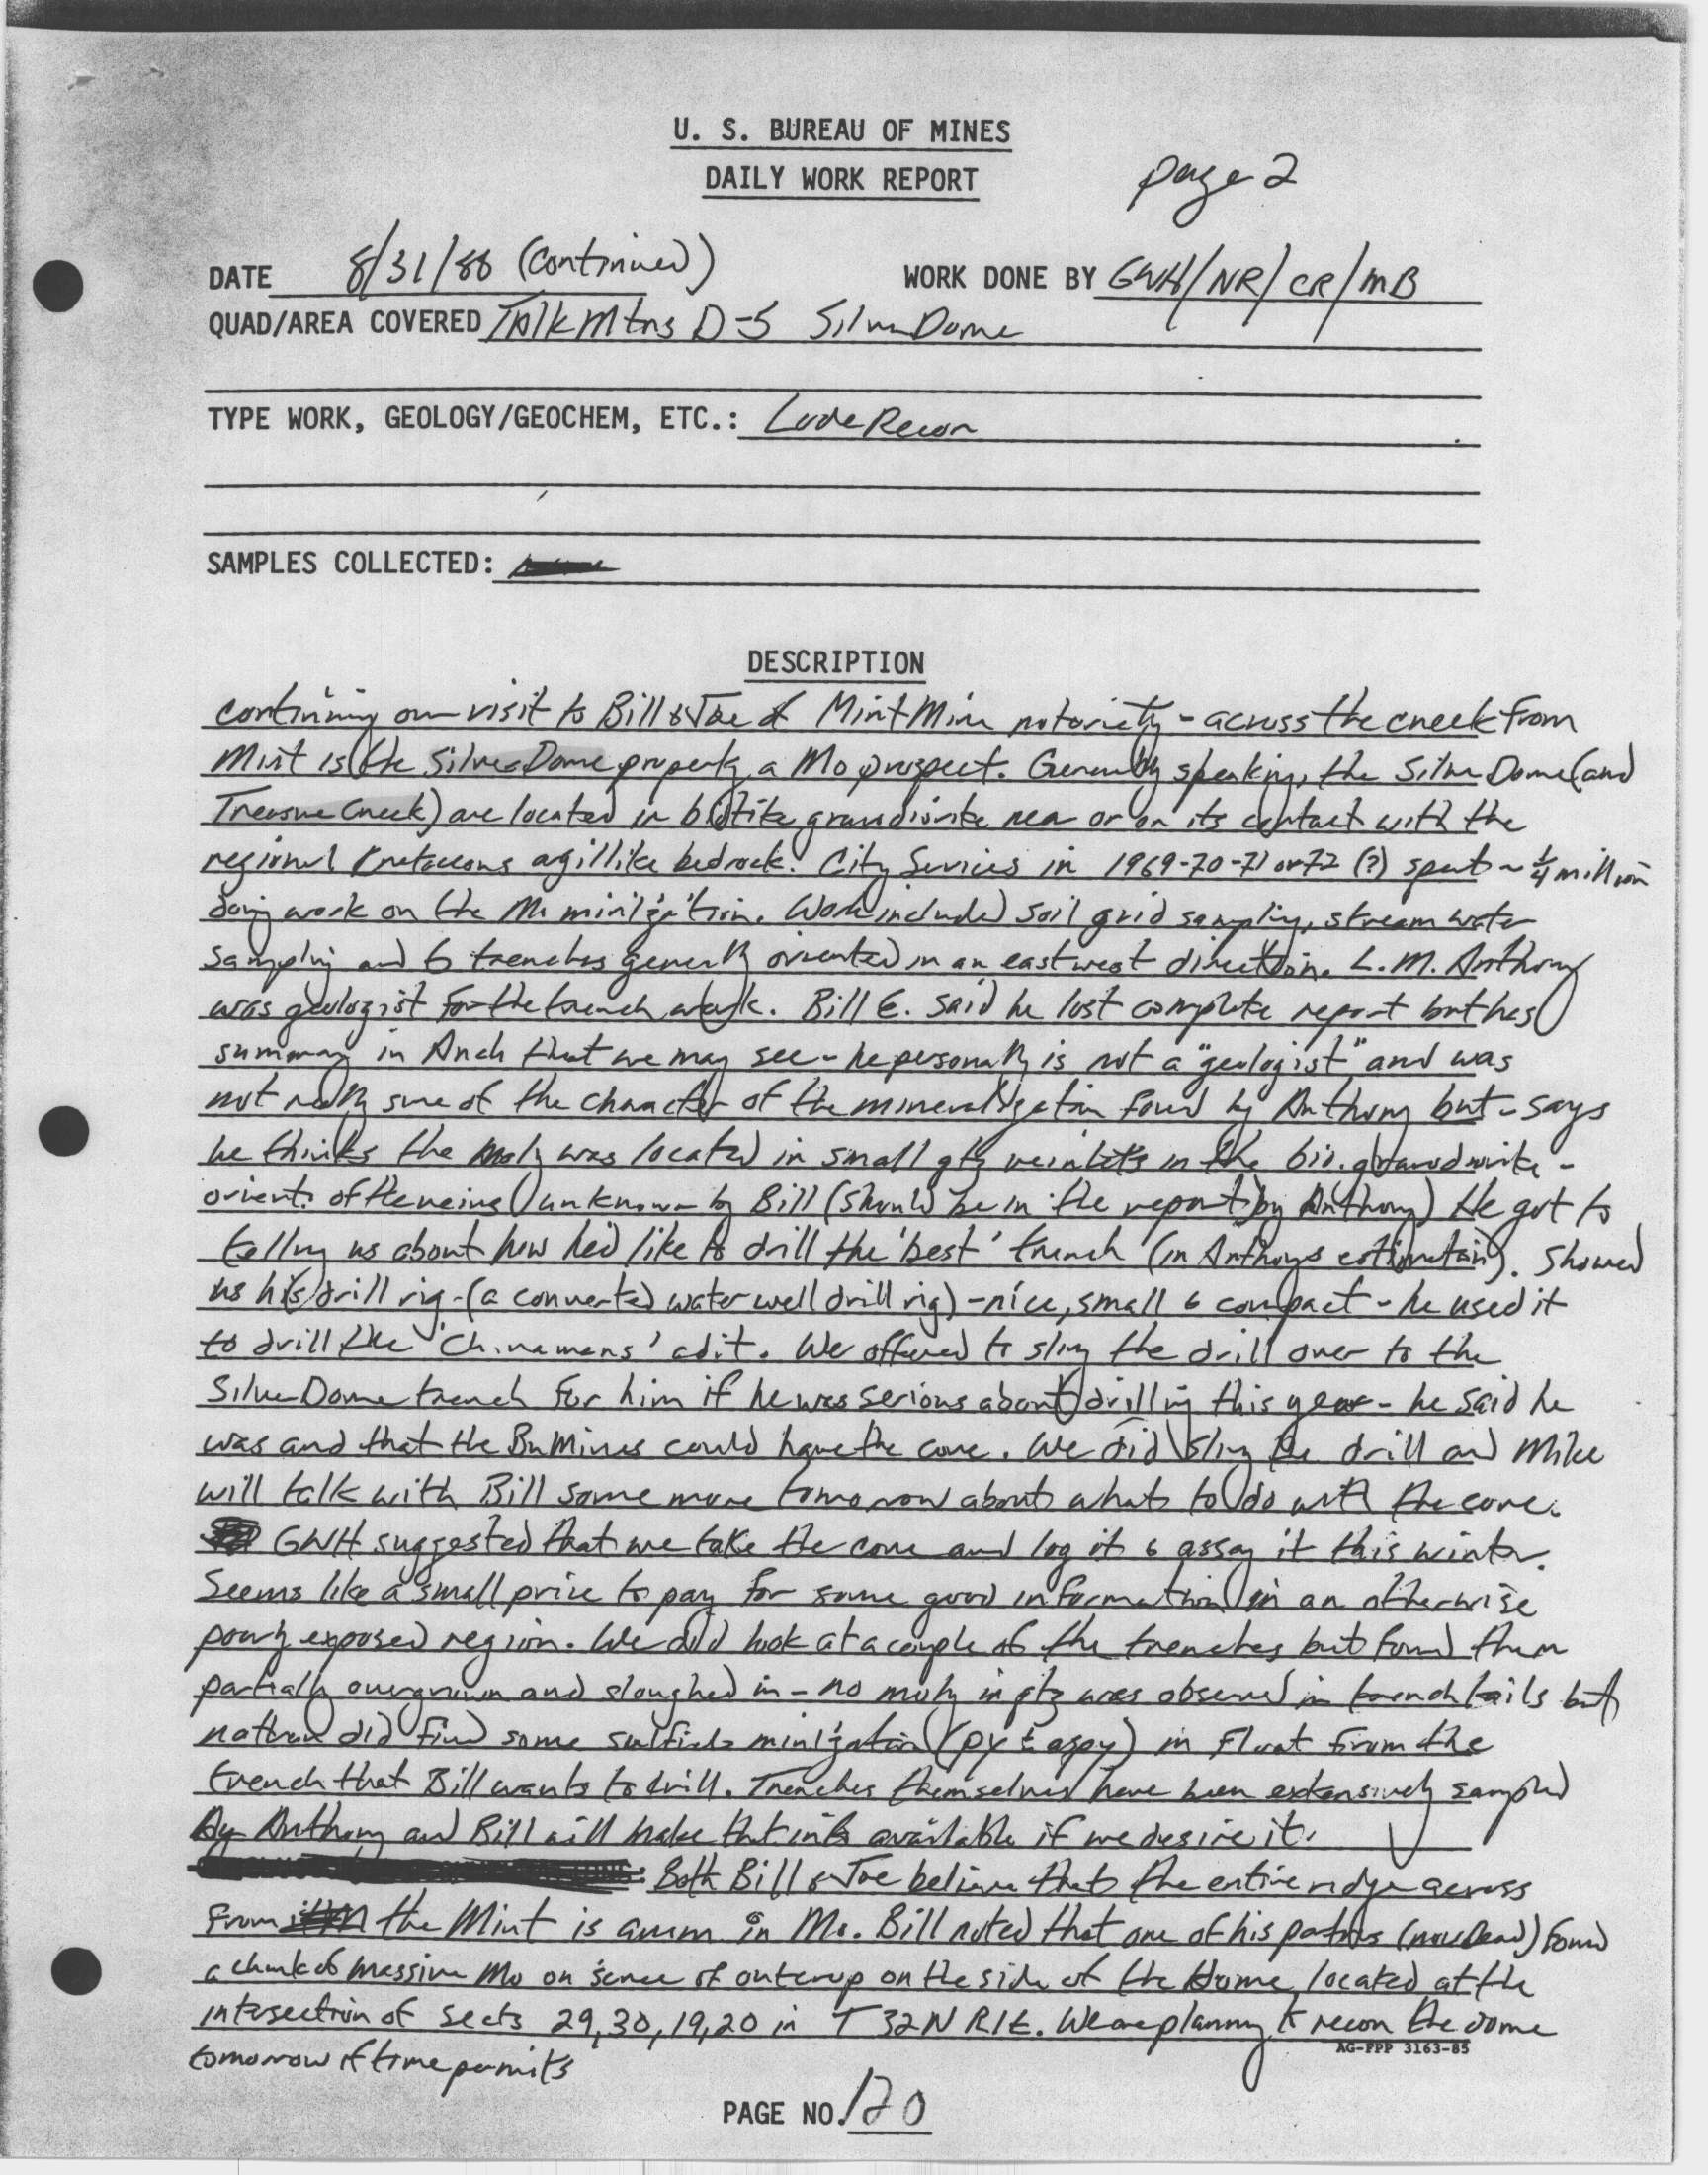 U. S. BUREAU OF MINES
DAILY WORK REPORT
page 2
DATE 8/31/88 (continued) WORK DONE BY GWH/NR/CR/MB
QUAD/AREA COVERED Talk Mtns D-5 Silver Dome
TYPE WORK, GEOLOGY/GEOCHEM, ETC.: Lode Recon
SAMPLES COLLECTED:
DESCRIPTION
continuing our visit to Bill & Joe of Mint Mine notoriety - across the creek from
Mint is the Silver Dome property, a Mo prospect. Generally speaking, the Silver Dome (and
Treasure Creek) are located in biotite granodiorite near or on its contact with the
regional Cretaceous argillite bedrock. City Services in 1969-70-71 or 72 (?) spent ~ 1/4 million
doing work on the Mo minlz'ation. Work included soil grid sampling, stream water
sampling and 6 trenches generally oriented in an east west direction. L.M. Anthony
was geologist for the trench work. Bill E. said he lost complete report but has
summary in Anch that we may see - he personally is not a "geologist" and was
not really sure of the character of the mineralization found by Anthony but - says
he thinks the moly was located in small qtz veinlets in the bio. granodiorite -
orient. of the veins unknown by Bill (should be in the report by Anthony) He got to
telling us about how he'd like to drill the 'best' trench (in Anthonys estimation). Showed
us his drill rig - (a converted water well drill rig) - nice, small & compact - he used it
to drill the 'Chinamens' adit. We offered to sling the drill over to the
Silver Dome trench for him if he was serious about drilling this year - he said he
was and that the BuMines could have the core. We did sling the drill and Mike
will talk with Bill some more tomorrow about what to do with the core.
GWH suggested that we take the core and log it & assay it this winter.
Seems like a small price to pay for some good information in an otherwise
poorly exposed region. We did look at a couple of the trenches but found them
partially overgrown and sloughed in - no moly in qtz was observed in trench tails but
nathan did find some sulfide minlz'ation (py ± aspy) in float from the
trench that Bill wants to drill. Trenches themselves have been extensively sampled
by Anthony and Bill will make that info available if we desire it.
Both Bill & Joe believe that the entire ridge across
from the Mint is anom in Mo. Bill noted that one of his partners (now dead) found
a chunk of massive Mo on scree of outcrop on the side of the dome, located at the
intersection of sects 29,30,19,20 in T 32N R1E. We are planning to recon the dome
tomorrow if time permits
AG-FPP 3163-85
PAGE NO. 120